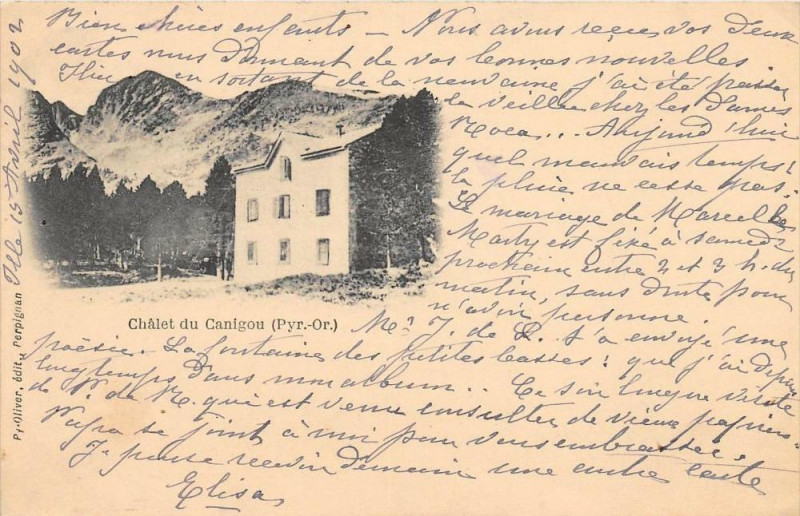 Ille 15 Avril 1902
Bien chères enfants — Nous avons reçu vos deux
cartes nous donnant de vos bonnes nouvelles.
Hier en sortant de la neuvaine j'ai été passer
la veillée chez les Dames
Roca... Aujourd'hui
quel mauvais temps!
la pluie ne cesse pas.
Le mariage de Marcelle
Marty est fixé à samedi
prochain entre 2 et 3 h. du
matin, sans doute pour
n'avoir personne.
Châlet du Canigou (Pyr.-Or.)
J. de L. t'a envoyé une
poésie. La fontaine des petites tasses: que j'ai depuis
longtemps dans mon album.. Ce soir longue visite
de V. de R. qui est venu consulter de vieux papiers.
Papa se joint à moi pour vous embrasser.
Je pense recevoir demain une autre carte
Elisa
Py-Oliver, édit., Perpignan